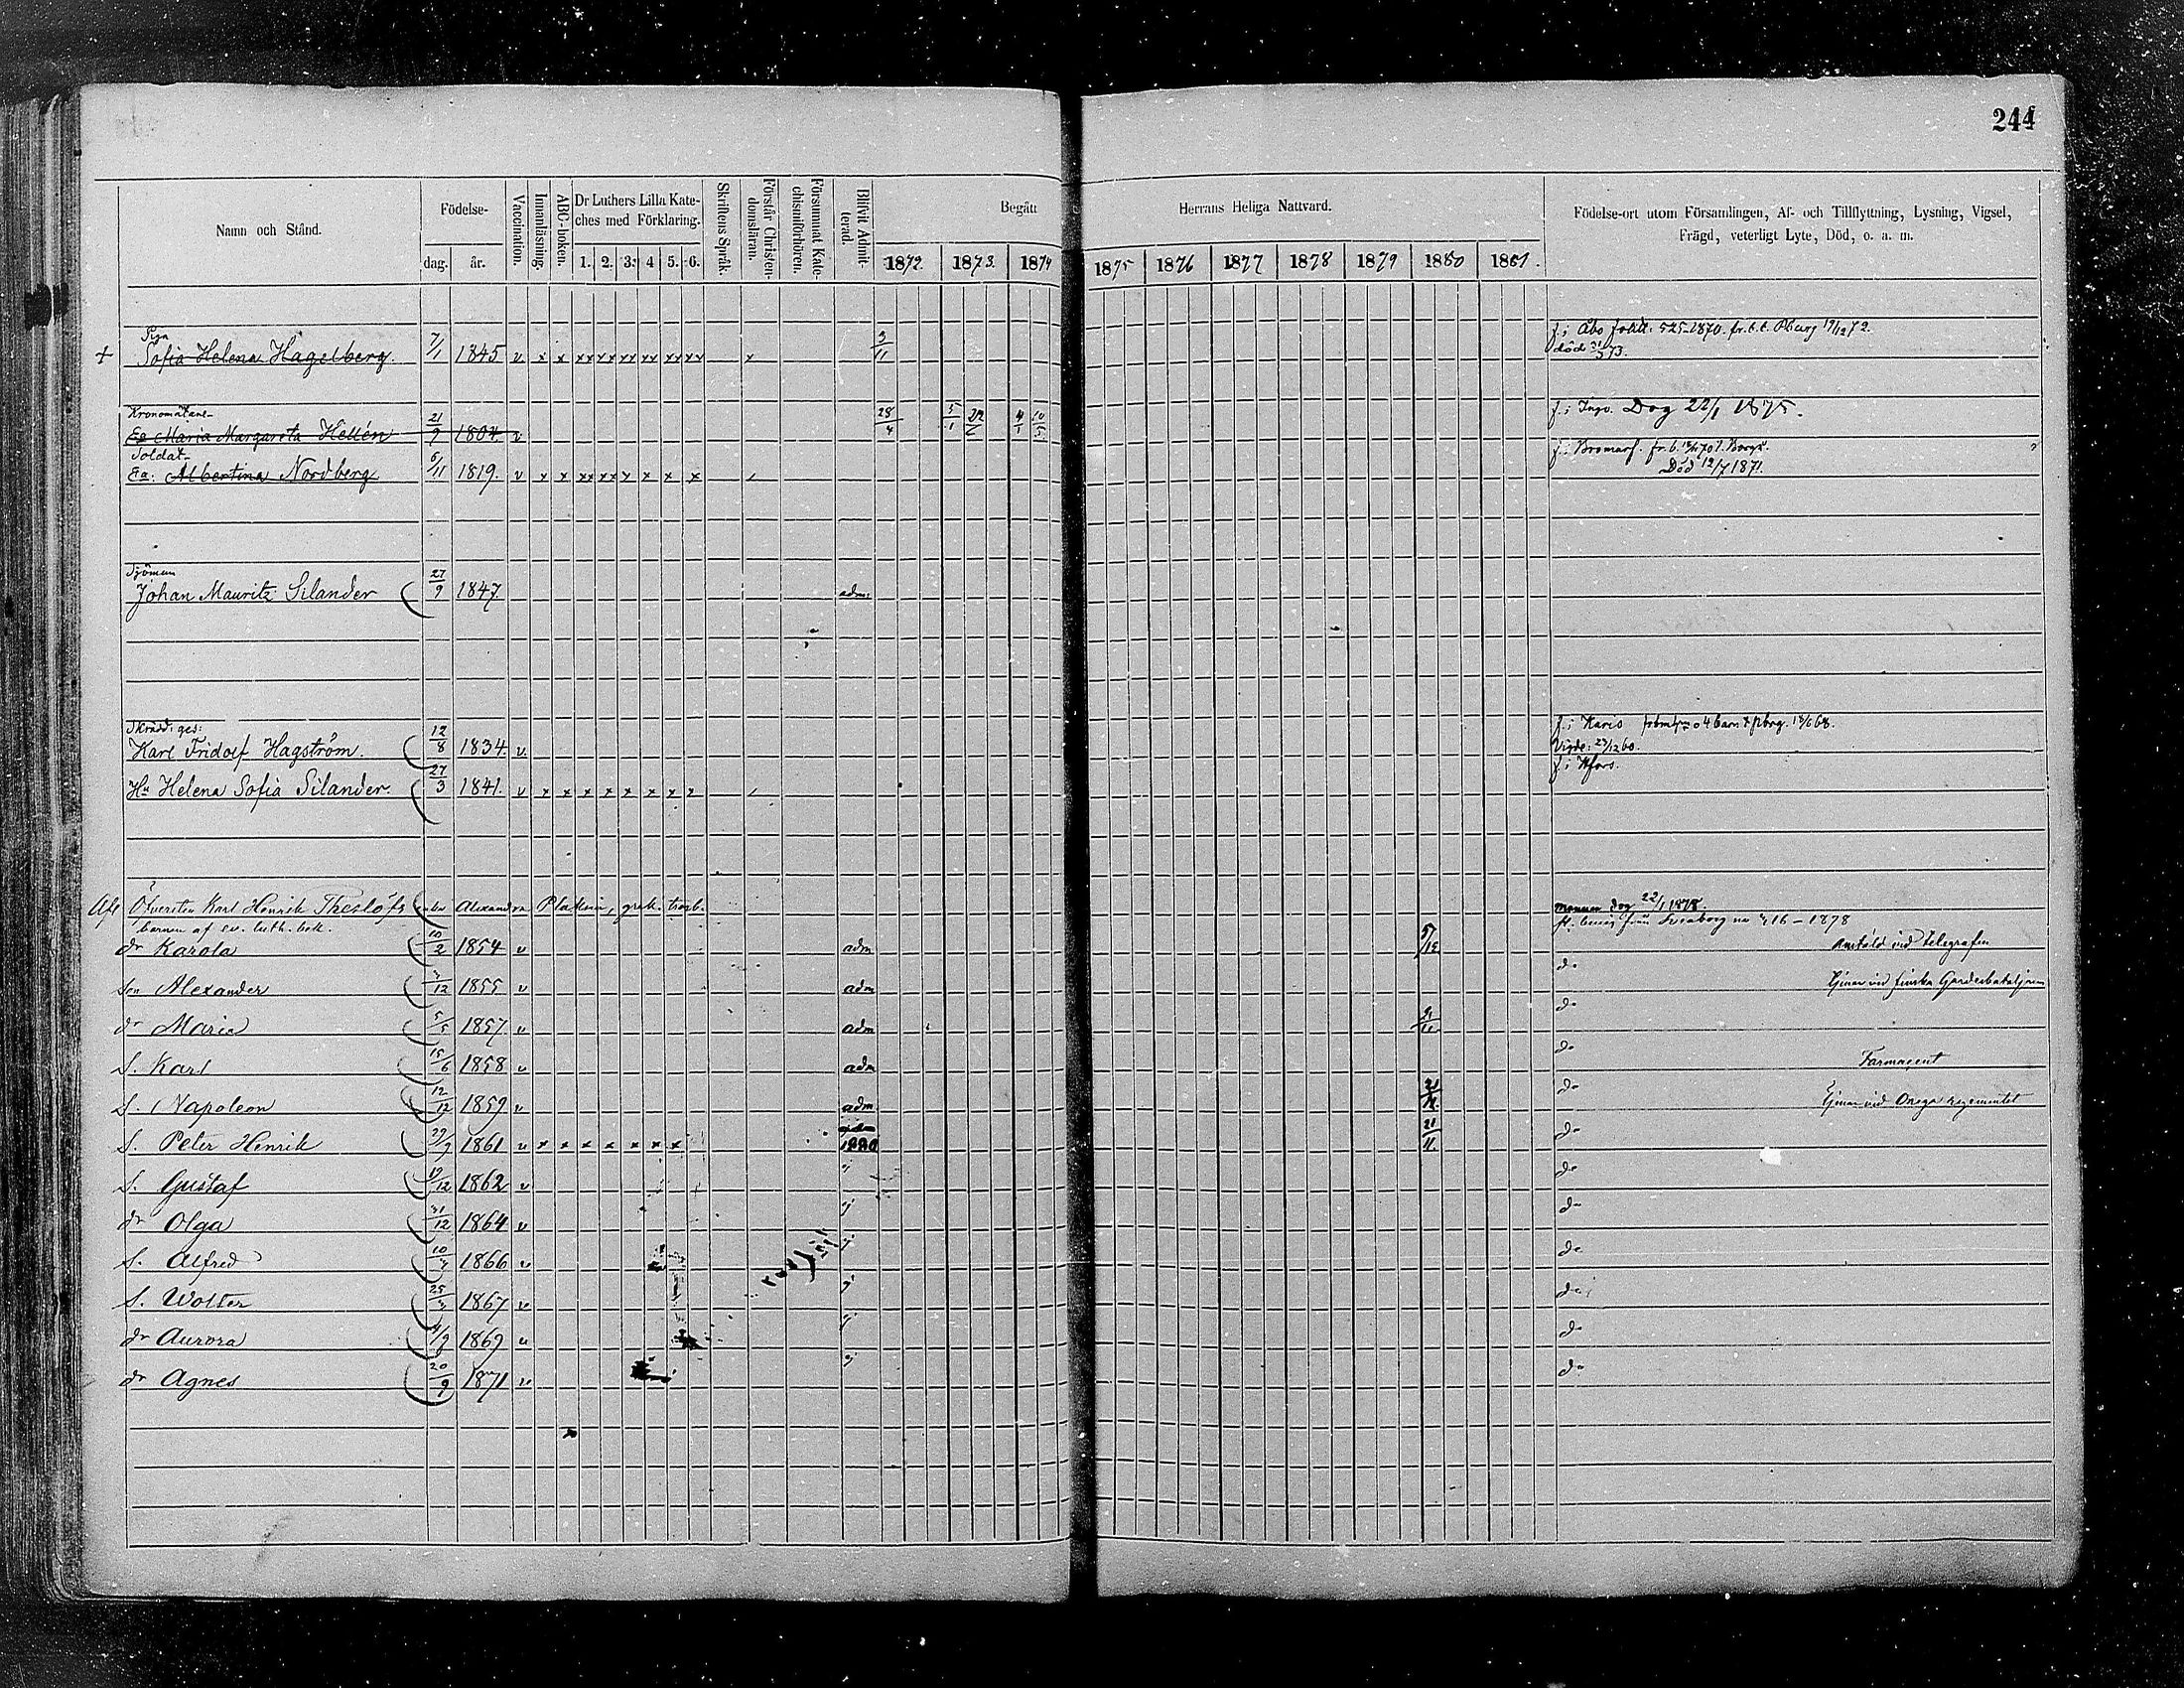 244
Namn och Stånd.
Födelse-
dag.
år.
Vaccination.
Innanläsning.
ABC-boken.
Dr Luthers Lilla Kate-
ches med Förklaring.
1. 2. 3. 4 5. 6.
Skriftens Språk.
Förstår Christen-
domsläran.
Försummat Kate-
chismiförhören.
Blifvit Admit-
terad.
Begått Herrans Heliga Nattvard.
1872. 1873. 1874 1875 1876 1877 1878 1879 1880 1881.
Födelse-ort utom Församlingen, Af- och Tillflyttning, Lysning, Vigsel,
Frägd, veterligt Lyte, Död, o. a. m.
Piga
+ Sofia Helena Hagelberg. 7/1 1845 v x x xx xx xx xx xx xx 3/11 f. i Åbo
död 31/5 73.
Kronomatans-
Ea Maria Margareta Hellén 21/9 1804 v 28/4 f. i Ingo. Dog 22/1 1875.
Soldat-
Ea. Albertina Nordberg 6/11 1819. v x x xx xx x x x x f. i Bromarf.
Död 12/7 1871.
Sjöman
Johan Mauritz Silander 27/9 1847 adm:
Skrädd: ges:
Karl Fridolf Hagström. 12/8 1834 v. f. i Karis
Vigde: 23/12 60.
Hu Helena Sofia Silander. 27/3 1841. v x x x x x x x x f. i Hfors.
Öfversten Karl Henrik Theslöfs Alexandra grek. trosb. mannen dog 22/1 1878.
barnen af ev. luth. bek. 16 - 1878
dr Karola 10/2 1854 v adm Anstäld vid telegrafen
Son Alexander 1855 v adm do Tjenar vid finska Gardesbataljonen
dr Maria 5/5 1857 v adm do
S. Karl 15/6 1858 v adm do Farmaceut
S. Napoleon 12/12 1859 v adm do Tjenar vid Onega regementet
S. Peter Henrik 29/9 1861 v x x x x x x x adm 1880 21/11 do
S. Gustaf 1862 v ej do
dr Olga 31/12 1864 v ej do
S. Alfred 1866 v ej do
S. Wolter 1867 v ej do
dr Aurora 1869 v ej do
dr Agnes 20/9 1871 v ej do